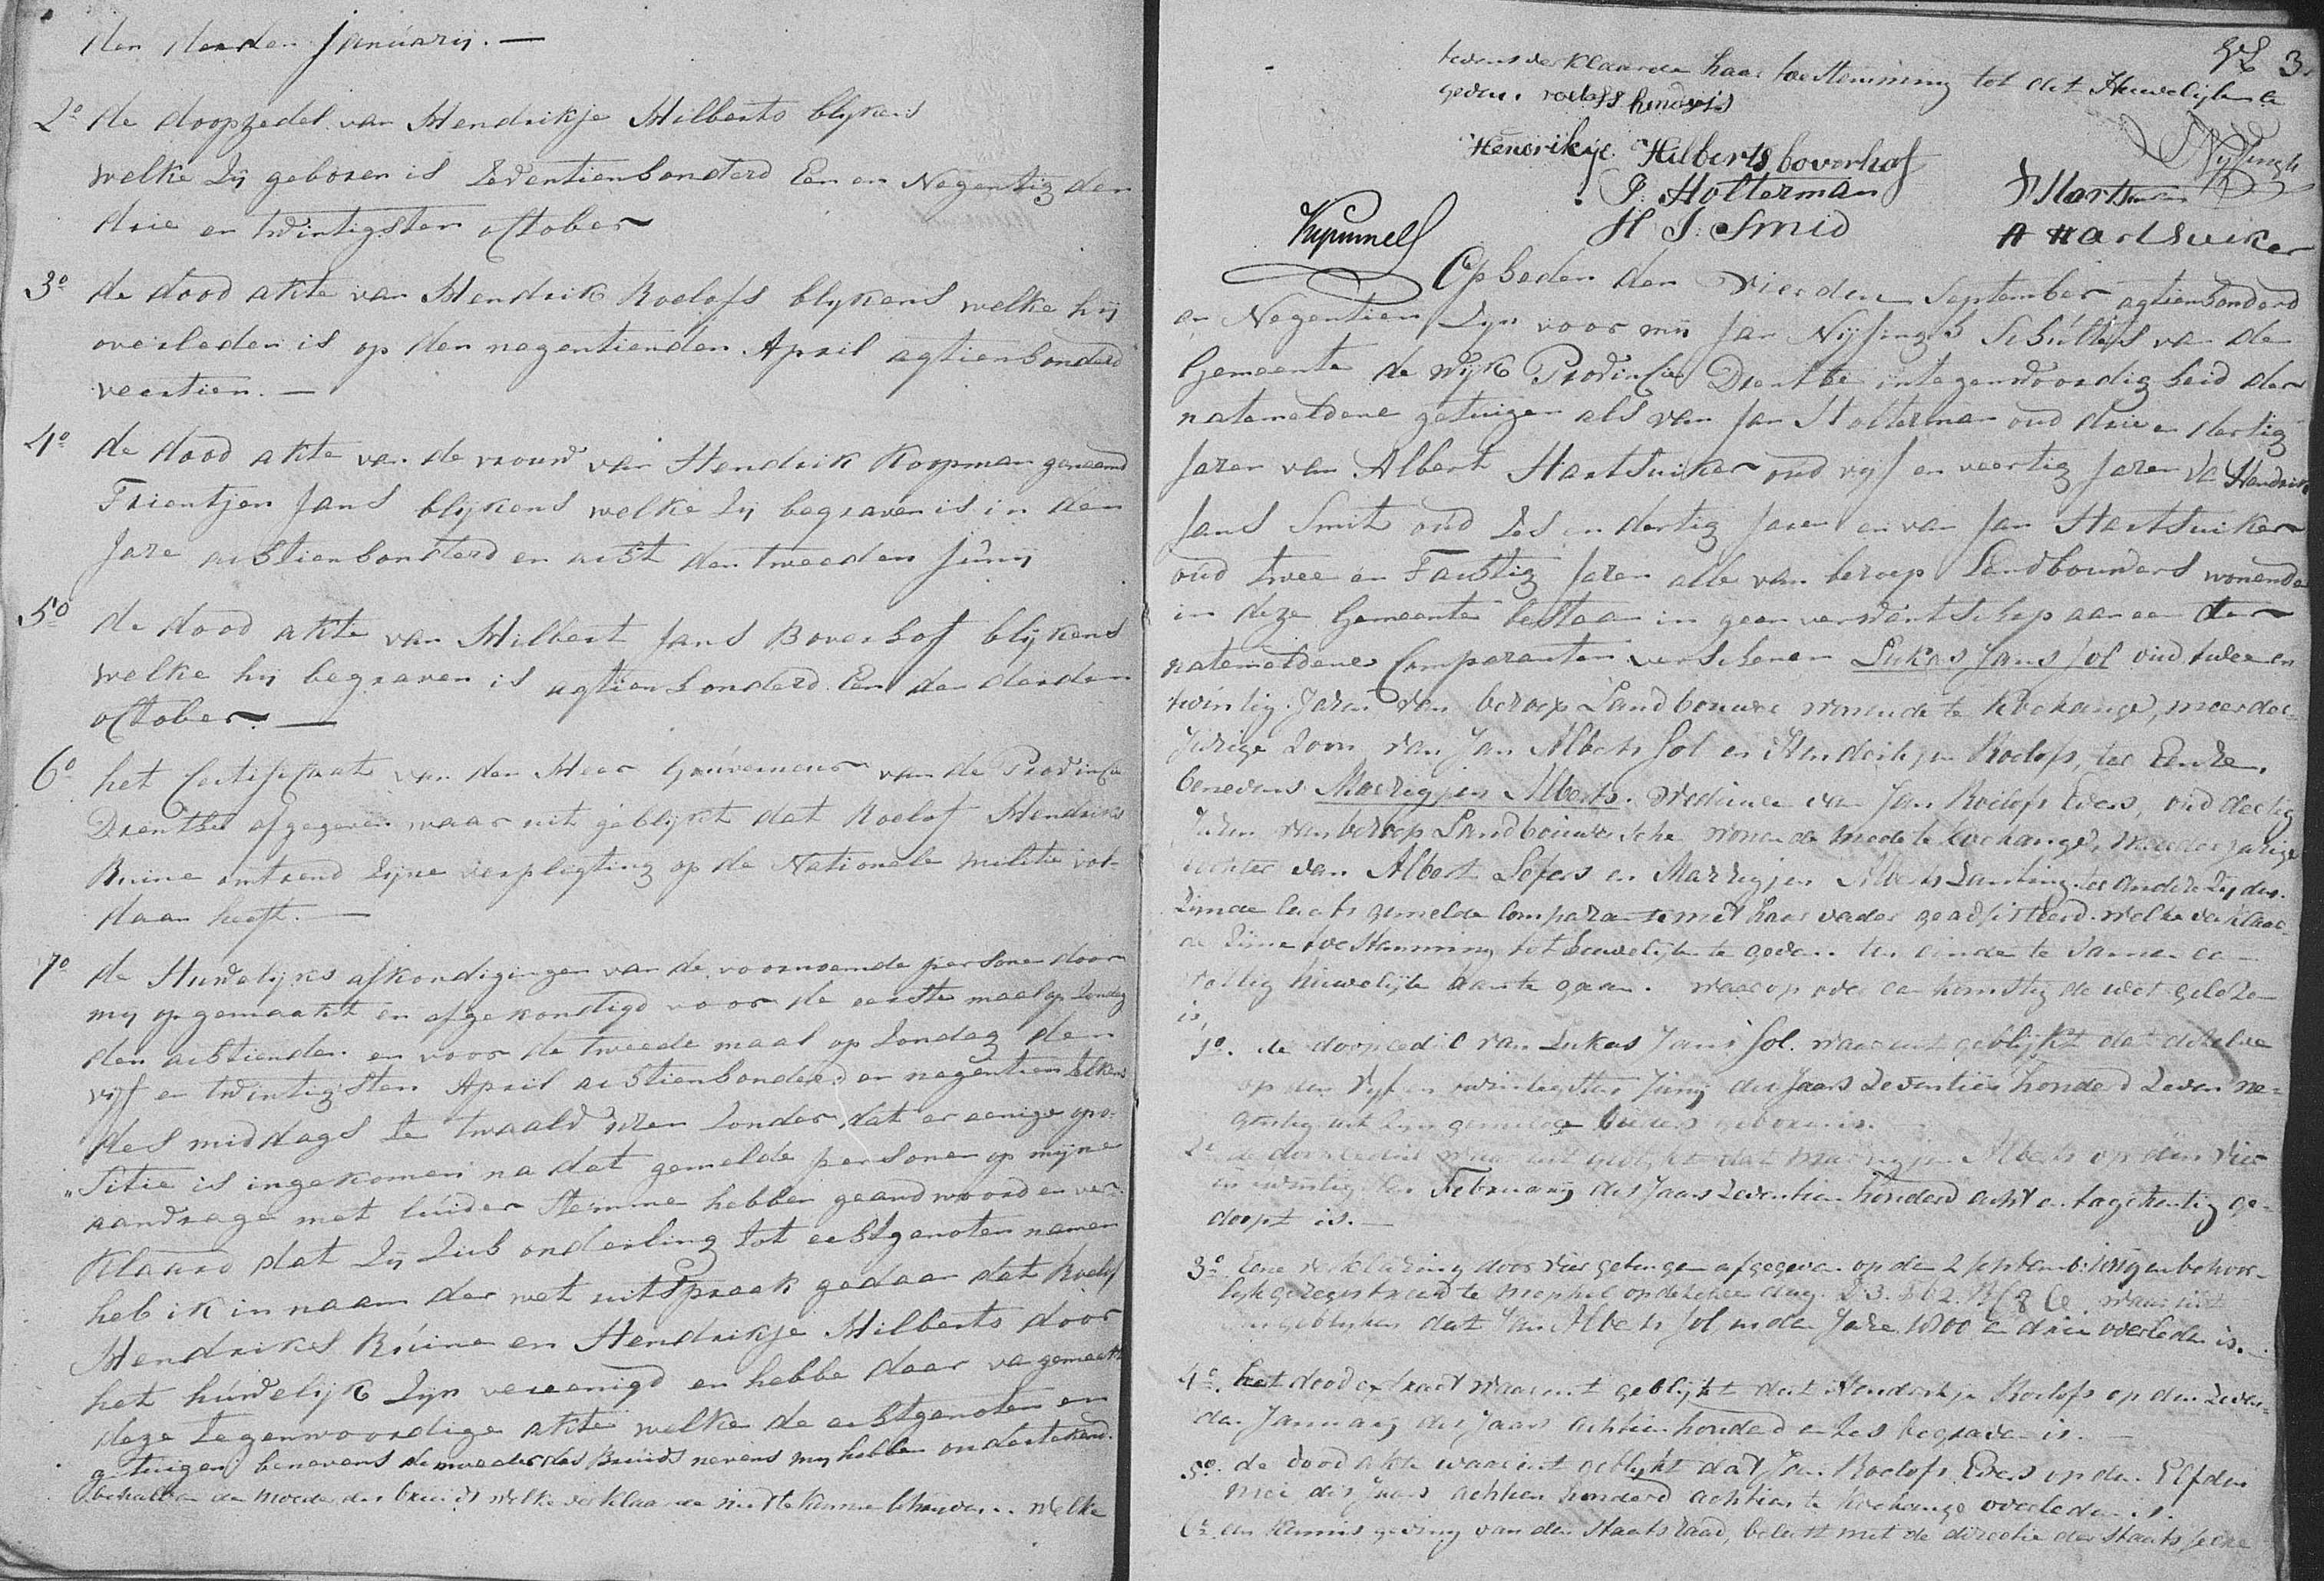 den derden Januarij. —
2o de doopzedel van Hendrikje Hilberts blykens
welke Zij geboren is Zeventienhonderd Een en Negentig den
drie en twintigsten October
3o de dood akte van Hendrik Roelofs blykens welke hij
overleden is op den negentienden April agtienhonderd
veertien. —
4o de dood akte van de vrouw van Hendrik Koopman genaamd
Trientjen Jans blijkens welke Zij begraven is in den
Jare achtienhonderd en acht den tweeden Junij
5o de dood akte van Hilbert Jans Boverhof blijkens
welke hij begraven is agtienhonderd Een den derden
October —
6o het Certificaat van den Heer Gouverneur van de Provincie
Drenthe afgegeven waar uit geblijkt dat Roelof Hendriks
Ruine omtrend Zijne verpligting op de Nationale militie vol-
daan heeft. —
7o de Huwelijks afkondigingen van de voornoemde personen door
my opgemaakt en afgekondigd voor de eerste maal op Zondag
den achtienden en voor de tweede maal op Zondag den
vijf en twintigsten April achtienhonderd en negentien telkens
des middags te twaalf uren Zonder dat er eenige opo-
„sitie is ingekomen na dat gemelde personen op mijne
aandrage met luider Stemme hebben geandwoord en ver-
klaard dat Zij Zich onderling tot echtgenoten namen
heb ik in naam der wet uitspraak gedaan dat Roelof
Hendriks Ruine en Hendrikje Hilberts door
het huwelijk Zijn vereenigd en hebbe daar va gemaakt
deze tegenwoordige akte welke de echtgenoten en
getuigen benevens de moeder des Bruids nevens my hebben ondertekend.
behalven de moeder des bruids welke verklaarde niet te kunnen schrijven. welke
3
tevens verklaarde haar toestemming tot dit Huwelijk te
geven. roelof hendriks
Hendrikje Hilberts boverhof
Nysingh
J. Holterman
J Hartsuiker
H J. Smid
A Hartsuiker
Op heden den Vierden September agtienhonderd
en Negentien Zijn voor mij Jan Nijsingh Schultes van de
Gemeente de Wijk Provincie Drenthe in tegenwoordigheid der
natemeldene getuigen als van Jan Holterman oud drie en dertig
Jaren van Albert Hartsuiker oud vijf en veertig Jaren va Hendrik
Jans Smit oud Zes en dertig Jaren en van Jan Hartsuiker
oud twee en Tachtig Jaren alle van beroep Landbouwers wonende
in deze Gemeente bestaan in geen verwantschap aan een der
natemeldene Comparanten verschenen Lukas Jans Sol oud twee en
twintig Jaren van beroep Landbouwer wonende te Koekange, meerder-
Jarige Zoon van Jan Alberts Sol en Hendrikjen Roelofs, ter Eenre,
benevens Marrigjen Alberts. Weduwe van Jan Roelofs Evers, oud dertig
Jaren van beroep Landbouwersche wonende mede te Koekange, meerderjarige
dochter van Albert Lefers en Marrigjen Alberts Lanting ter andere Zyden.
Zijnde laatsgemelde Comparante met haar vader geadsisteerd. welke verklaar-
de Zijne toestemming tot huwelijk te geven. ten einde te Samen een
wettig huwelijk aan te gaan. waar op over een komstig de wet gelezen
is,
1o. de doopcedul van Lukas Jans Sol. waar uit geblijkt dat dezelve
op den vyf en twintigsten Junij des Jaars Zeventien honderd Zeven ne-
gentig uit Zijn gemelde ouders geboren is.
2o de doopcedul waar uit geblijkt dat Marrigjen Alberts op den vier
en twintigsten February des Jaars Zeventien honderd acht en tagchentig ge-
doopt is. —
3o. Eene verklaring door vier getuigen afgegeven op den 2 September 1819 en behoor-
lyk geregistreerd te Meppel op dezelve dag. waar uit
geblyken dat Jan Alberts Sol in den Jare 1800 en drie overleden is. —
4o. het dood extract waar uit geblijkt dat Hendrikje Roelofs op den Zeven-
den January des Jaars achtien honderd en Zes begraven is. —
5o. de dood akte waar uit geblykt dat Jan Roelofs Evers op den Elfden
Mei des Jaars achtien honderd achtien te Koekange overleden is.
6o. een kennisgeving van den Staatsraad, belast met de directie der Staats secre